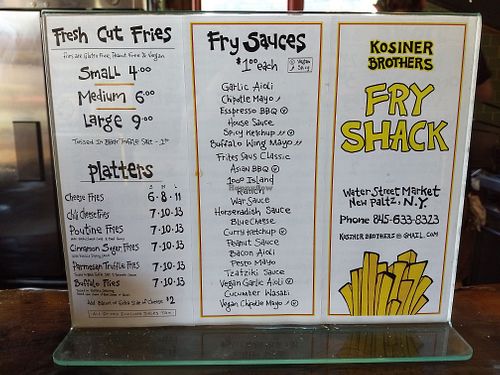 Fresh Cut Fries
Fries are Gluten Free, Peanut Free & Vegan
Small 4.00
Medium 6.00
Large 9.00
Tossed in Black Truffle Salt - 1.00
Platters
S M L
Cheese Fries 6 · 8 · 11
Chili Cheese Fries 7 · 10 · 13
Poutine Fries 7 · 10 · 13
Cinnamon Sugar Fries 7 · 10 · 13
Parmesan Truffle Fries 7 · 10 · 13
Buffalo Fries 7 · 10 · 13
Add Bacon or Extra Side of Cheese $2
All Prices Exclude Sales Tax
Fry Sauces
$1.00 each
V Vegan
Spicy
Garlic Aioli
Chipotle Mayo
Esspresso BBQ V
House Sauce
Spicy Ketchup V
Buffalo Wing Mayo
Frites Saus Classic
Asian BBQ V
1000 Island
Ranch
War Sauce
Horseradish Sauce
Blue Cheese
Curry Ketchup V
Peanut Sauce
Bacon Aioli
Pesto Mayo
Tzatziki Sauce
Vegan Garlic Aioli V
Cucumber Wasabi
Vegan Chipotle Mayo V
Kosiner
Brothers
Fry
Shack
Water Street Market
New Paltz, N.Y.
Phone 845-633-8323
Kosiner Brothers @ gmail.com